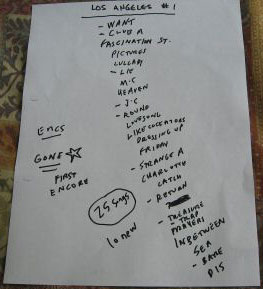 LOS ANGELES #1
- WANT
- CLUB A
FASCINATION ST.
PICTURES
LULLABY
- LIE
M.C
HEAVEN
- J.C
- ROUND
LOVESONG
LIKE COCKATOOS
DRESSING UP
FRIDAY
- STRANGE A
CHARLOTTE
CATCH
- RETURN
- TREASURE
TRAP
PRAYERS
INBETWEEN
SEA
- BARE
DIS
ENCS
GONE ☆
FIRST
ENCORE
25 songs
10 new